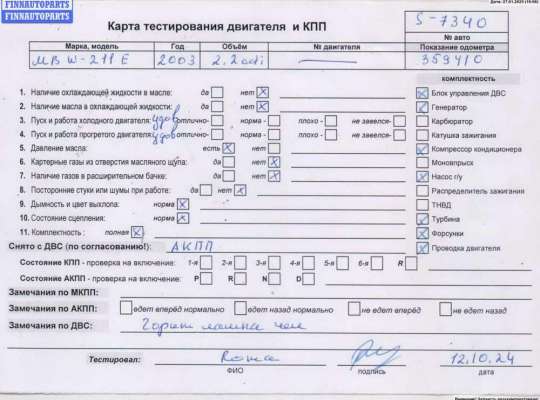 FINNAUTOPARTS
FINNAUTOPARTS
Карта тестирования двигателя и КПП
S-7340
№ авто
Марка, модель Год Объём № двигателя Показание одометра
MB W-211 E 2003 2,2 cdi — 359410
комплектность
1. Наличие охлаждающей жидкости в масле: да нет X
2. Наличие масла в охлаждающей жидкости: да нет X
3. Пуск и работа холодного двигателя: удов отлично- норма - плохо - не завелся-
4. Пуск и работа прогретого двигателя: удов отлично- норма - плохо - не завелся-
5. Давление масла: есть X нет
6. Картерные газы из отверстия масляного щупа: да нет X
7. Наличие газов в расширительном бачке: да нет X
8. Посторонние стуки или шумы при работе: да нет X
9. Дымность и цвет выхлопа: норма X
10. Состояние сцепления: норма X
11. Комплектность : полная X
X Блок управления ДВС
X Генератор
Карбюратор
Катушка зажигания
X Компрессор кондиционера
Моновпрыск
X Насос г/у
Распределитель зажигания
ТНВД
X Турбина
X Форсунки
X Проводка двигателя
Снято с ДВС (по согласованию!): АКПП
Состояние КПП - проверка на включение: 1-я 2-я 3-я 4-я 5-я 6-я R
Состояние АКПП - проверка на включение: P R N D
Замечания по МКПП:
Замечания по АКПП: едет вперёд нормально едет назад нормально не едет вперёд не едет назад
Замечания по ДВС: Горит
Тестировал: Рома 12.10.24
ФИО подпись дата